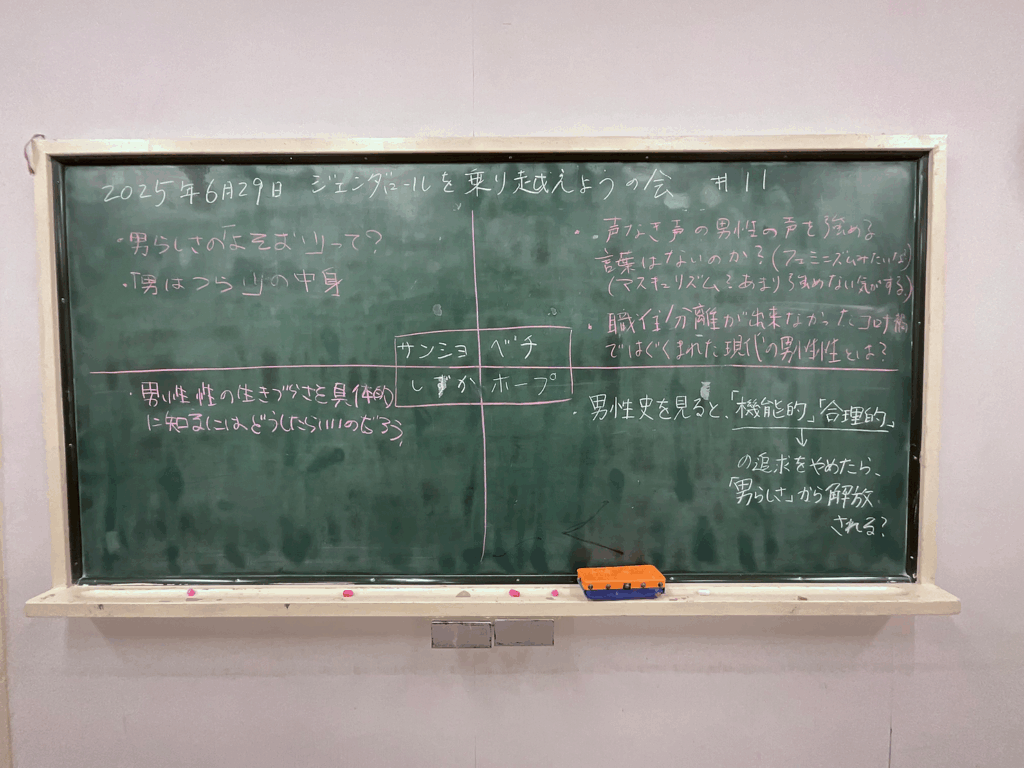 2025年6月29日 ジェンダロールを乗り越えようの会 #11
・男らしさの「よそおい」って?
・「男はつらい」の中身
・声なき声の男性の声を強める
言葉はないのか?(フェミニズムみたいな)
(マスキュリズムをあまり求めない気がする)
・職住分離が出来なかったコロナ禍
ではぐくまれた現代の男性性とは?
サンショ ベチ
しずか ホープ
・男性性の生きづらさを具体的
に知るにはどうしたらいいのだろう
・男性史を見ると、「機能的」「合理的」
↓
の追求をやめたら、
「男らしさ」から解放
される?